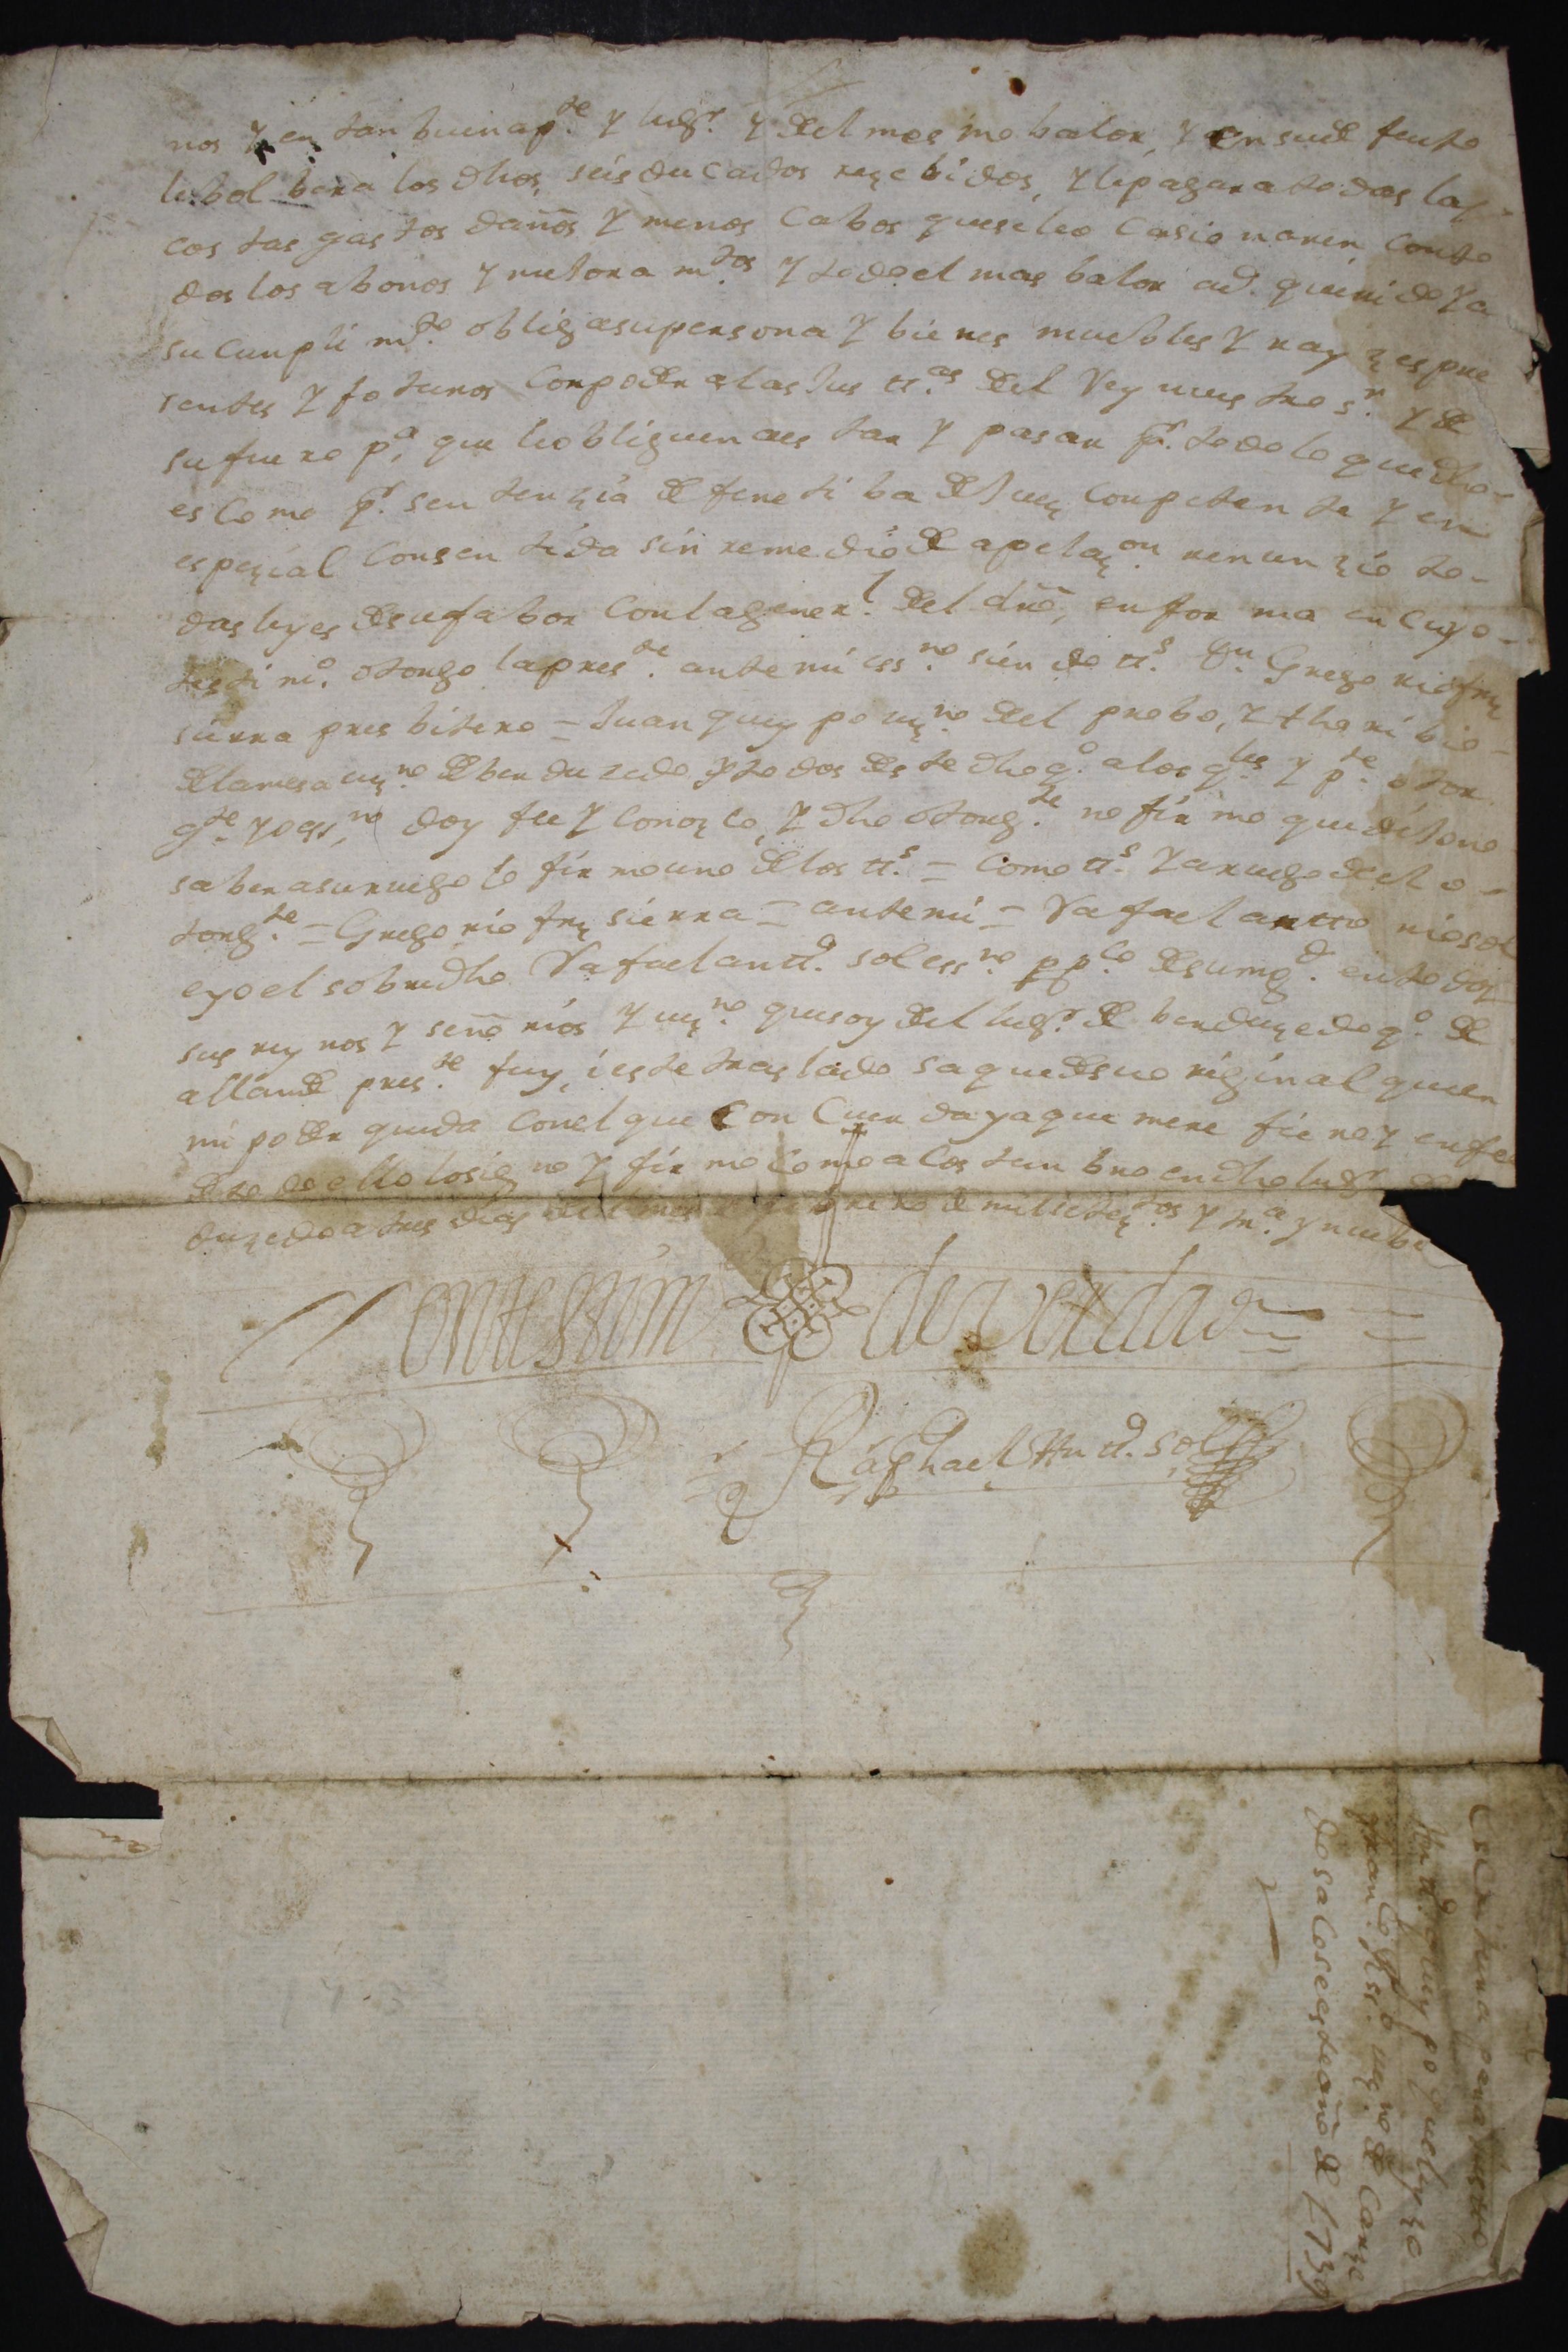 nos y en tan buena p.te y lug.r y del mesmo balor, y en su defeuto
le bolbera los dhos seis ducados rezebidos, y le pagara todas las
costas gastos daños y menos cabos que se le ocasionaren con to
dos los abonos y mejoramtos y todo el mas balor ad.querido y a
su cunplimto obliga su persona y bienes muebles y rayzes pre
sentes y foturos con poder a las Justt.as del Rey nuestro s.r y de
su fuero p.a que le obliguen a estar y pasar p.r todo lo que dho
es como p.r sentenzia defenetiba de Juez conpetente y en
espezial consentida sin remedio de apelaz.on renunzio to-
das leyes de su fabor con la gener.l del dro, en forma en cuyo-
testim.o otorgo la pres.te ante mi ess.no siendo tt.s Dn. Gregorio frz
sierra presbitero = Juan queypo vz.no del probo, y thoribio-
de la mesa vz.no de berduzedo y todos deste dho q.o a los q.les y p.te otor
g.te yo ess.no doy fee y conozco, y dho otorg.te no firmo que dijo no
saber a su ruego lo firmo uno de los tt.s = como tt.s y a ruego de el o-
torg.te = Gregorio frz sierra = ante mi = Rafael antto rio sol
e yo el sobredho Rafael antt.o sol ess.no pp.co de su mag.d en todos
sus reynos y señorios y vz.no que soy del lug.r de berduzedo q.o de
allande pres.te fuy, i este traslado saque de su original que en
mi poder queda con el que concuerda y a que me refiero y en fee
de todo ello lo signo y firmo como acostunbro en dho lug.r de
duzedo a tres dias del mes de febrero de mil setez.os y tr.a y nuebe
en testim.o de verdad
Raphael Antt.o sol
Escritura para
Antt.o queypo que
fran.co vz.no de Carzo
do saco este año de 1739